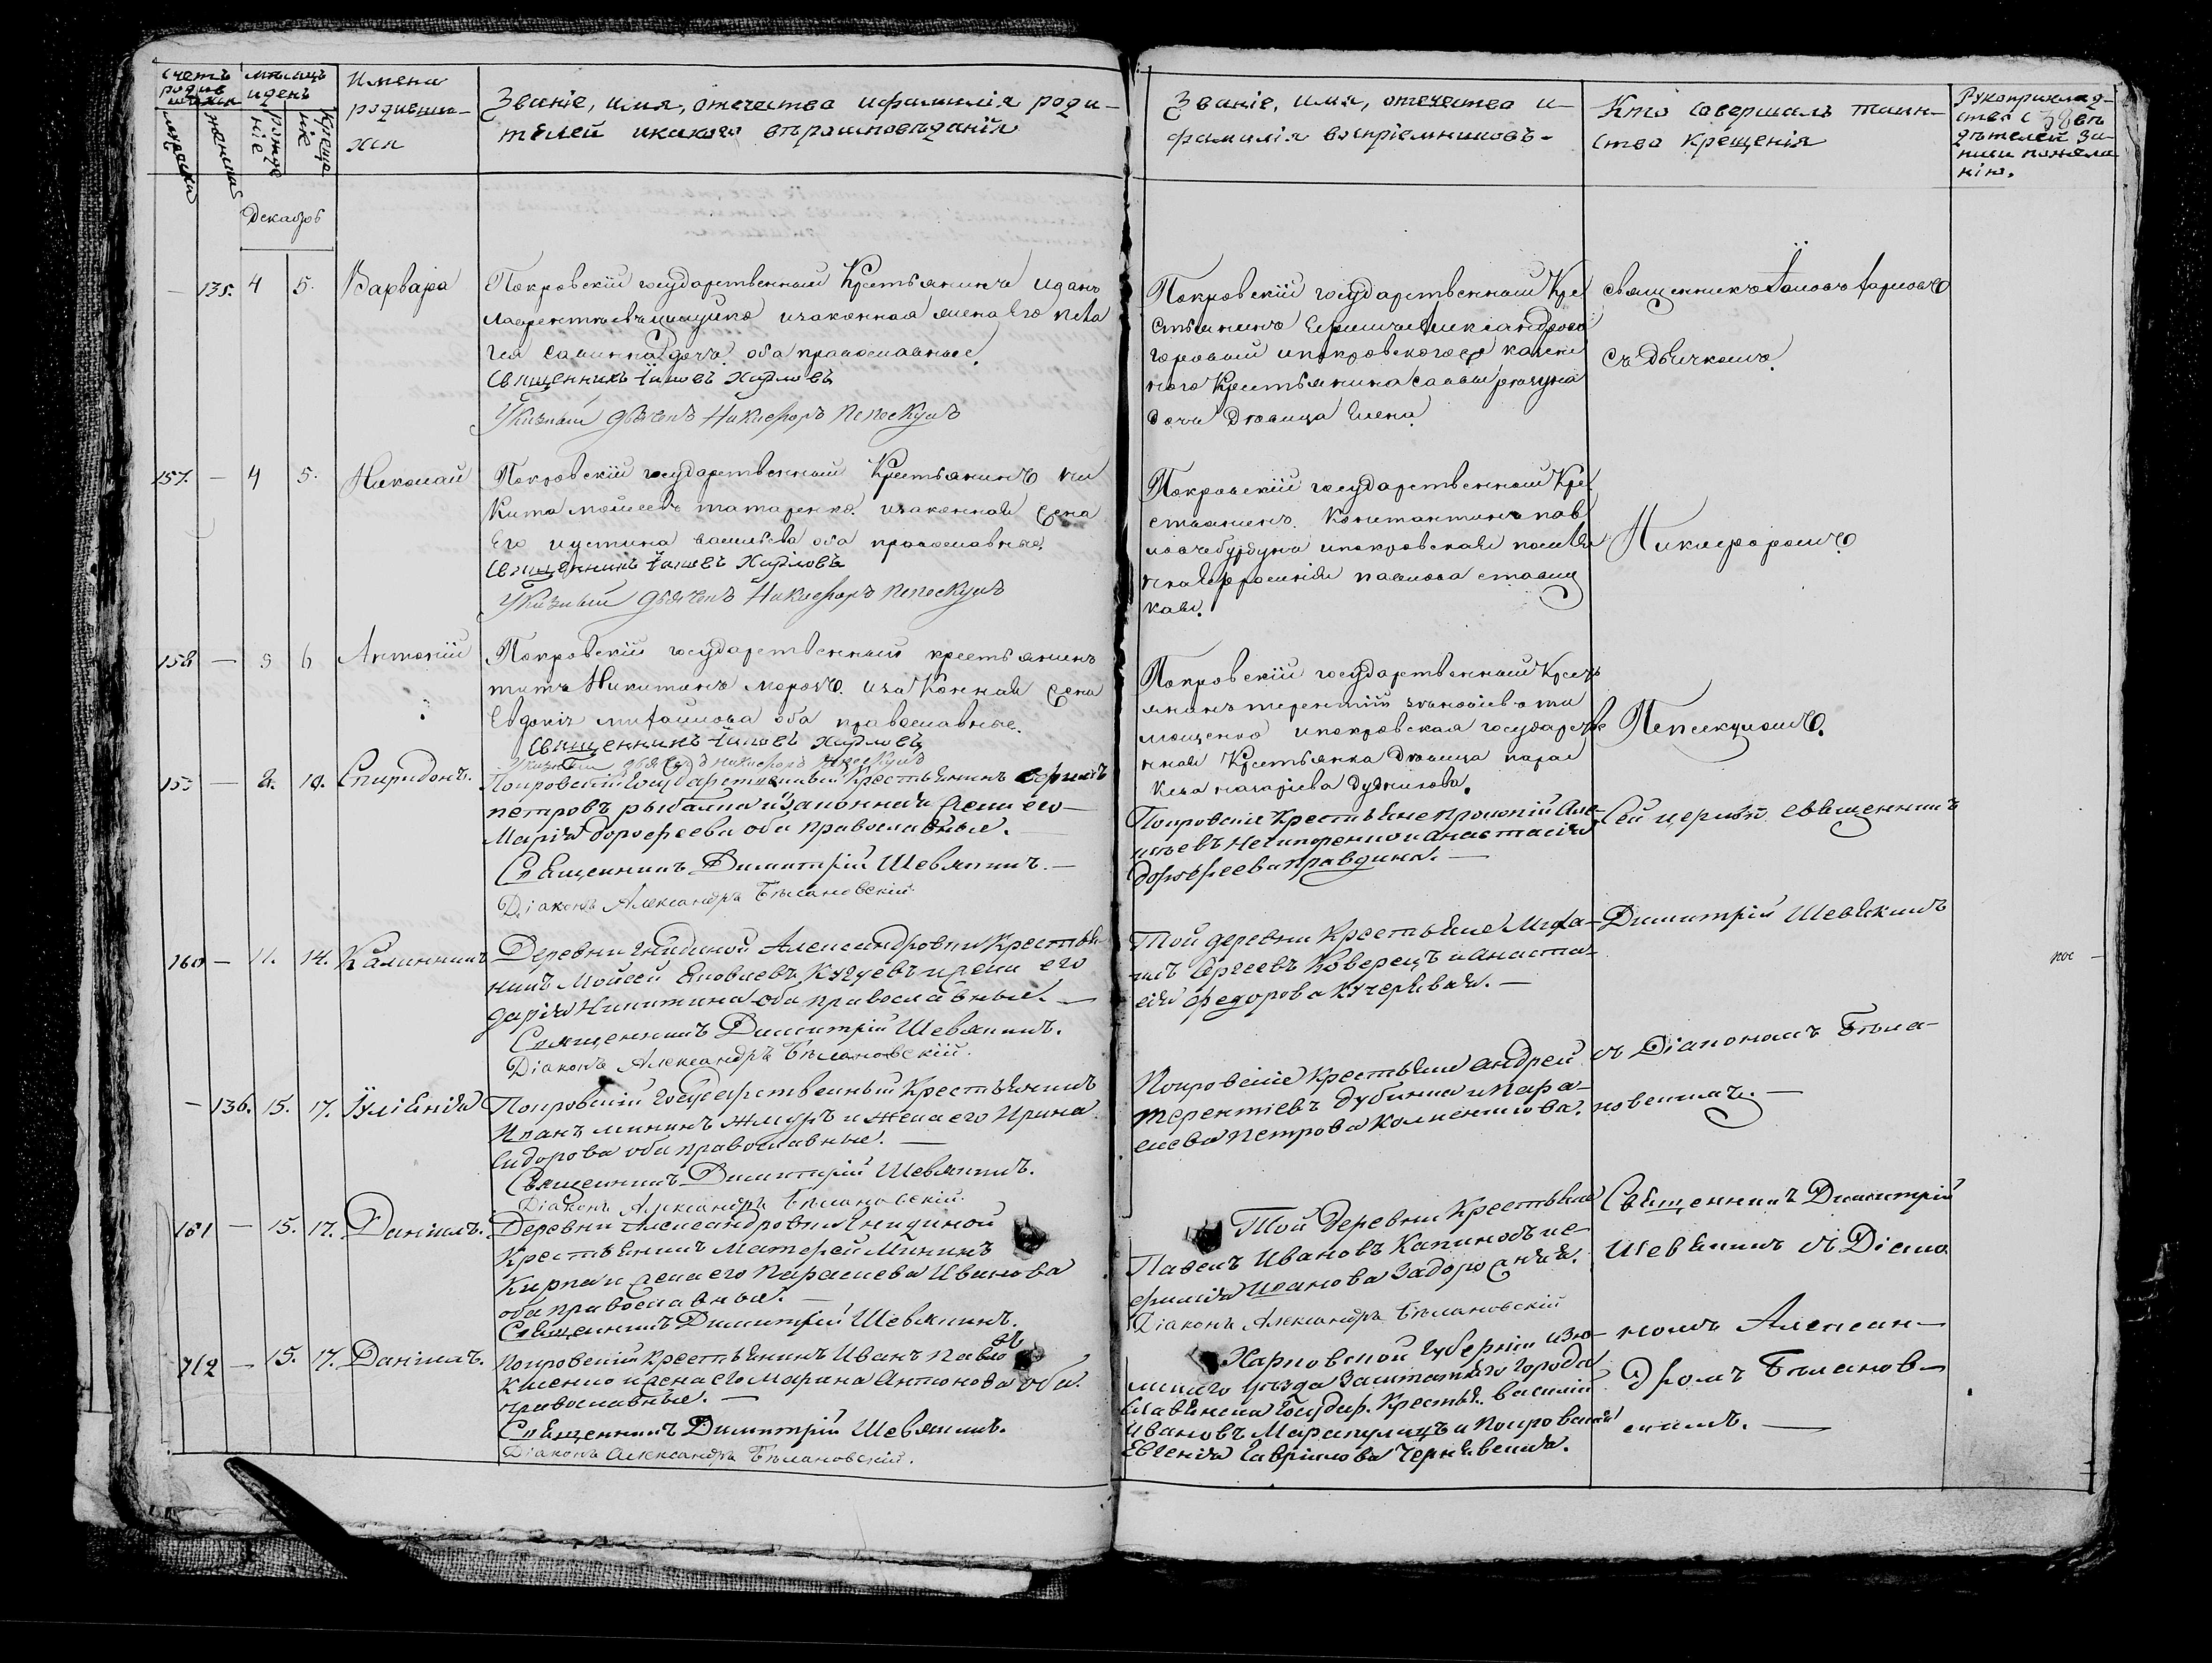 Счетъ родив
шихся
мужеска
женска
мѣсяцъ
иденъ
рожде
ніе
Креще
ніе
Имена
родивши-
хся
Званіе, имя, отечество ифамилія роди-
телей икакого вѣроисповѣданія
Званіе, имя, отечество и-
фамилія воспріемниковъ-
Кто совершалъ таин-
ство Крещенія
Рукоприклад-
ство свѣ-
дѣтелей за-
писи пожела-
нію.
Декабрь
— 135. 4 5. Варвара
Покровскій государственный Крестьянинъ
Лаврентіевъ изаконная жена Его Пела
гея Савина дочь оба православные.
Священникъ Іаковъ Харловъ
Указный дьячекъ Никифоръ Пепескулъ
Покровскій государственный Кре
стьянинъ
ипокровского казен
ного Крестьянина Саввы
дочь Девица Елена.
священникъ Іаковъ Харловъ
съ дьячкомъ
157. — 4 5. Николай
Покровскій государственный Крестьянинъ Ни
кита Моѵсеевъ татаренко изаконная жена
Его иустина васильева оба православные.
Священникъ Іаковъ Харловъ
Указный дьячекъ Никифоръ Пепескулъ
Покровскій государственный Кре
стьянинъ Константинъ пав
ловъ ипокровская
павлова
Никифоромъ
158 — 5 6 Антоній
Покровскій государственный крестьянинъ
титъ Никитинъ морозъ изаконная жена
Евдокія михайлова оба православные.
Священникъ Іаковъ Харловъ
Указный дьячекъ Никифоръ Пепескулъ
Покровскій государственный Крест
янинъ терентій ти
мощенко ипокровская государстве
нная Крестьянка Девица парас
кева назаріева дудникова.
Пепескуломъ.
159 — 8. 10. Спиридонъ.
Покровскій Государственный Крестьянинъ Сергій
петровъ рыбалка изаконная жена его—
Марія дорофеева оба православные.—
Священникъ Димитрій Шевякинъ.—
Діаконъ Александръ Бѣлановскій
Покровскіе Крестьяне Прокопій Але-
ксѣевъ Нечипоренко и Анастасія
дорофеева правдина.—
Сей церкви священникъ
160 — 11. 14. Калинникъ
Деревни Гнидиной Александровки Крестья-
нинъ Мойсей Яковлевъ Кучуевъ и жена его
дарія Никитина оба православные.—
Священникъ Димитрій Шевякинъ.
Діаконъ Александръ Бѣлановскій.
Той деревни Крестьяне Миха-
илъ Сергеевъ Коверецъ и Анаста-
сія федорова Кучерявая.—
Димитрій Шевякинъ
— 136. 15. 17. Іуліанія
Покровскій Государственный Крестьянинъ
Иванъ мининъ жмуръ и жена его Ирина
Сидорова оба православные.—
Священникъ Димитрій Шевякинъ.
Діаконъ Александръ Бѣлановскій.
Покровскіе Крестьяне Андрей
терентіевъ дубинка и Пара-
скева Петрова Колмечикова.
съ Діакономъ Бѣла-
новскимъ.—
161 — 15. 17. Даніилъ.
Деревни Александровки Гнидиной
Крестьянинъ Матфей Мининъ
Кирпа и жена его Параскева Иванова
оба православные.—
Священникъ Димитрій Шевякинъ.
Діаконъ Александръ Бѣлановскій
Той Деревни Крестьяне
Павелъ Ивановъ Калиновъ и е-
фимія Иванова Задорожняя.
Священникъ Димитрій
Шевякинъ съ Діако
162 — 15. 17. Даніилъ.
Покровскій Крестьянинъ Иванъ Павловъ
Клеенко и жена его Марина Антонова оба
православные.—
Священникъ Димитрій Шевякинъ.
Діаконъ Александръ Бѣлановскій.
Харковской Губерніи Изю-
мского уѣзда Заштатнаго Города
Славянска Государ. Крестья. василій
Ивановъ Марапулецъ и Покровская
Евгенія Гаврилова Чернявская.
номъ Алексан-
дромъ Бѣланов-
скимъ.—